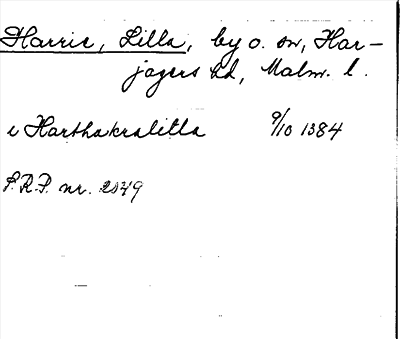 Harrie, Lilla, by o. sn, Har-
jagers hd, Malm. l.
i Harthakralilla 9/10 1384
S.R.P. nr. 2549